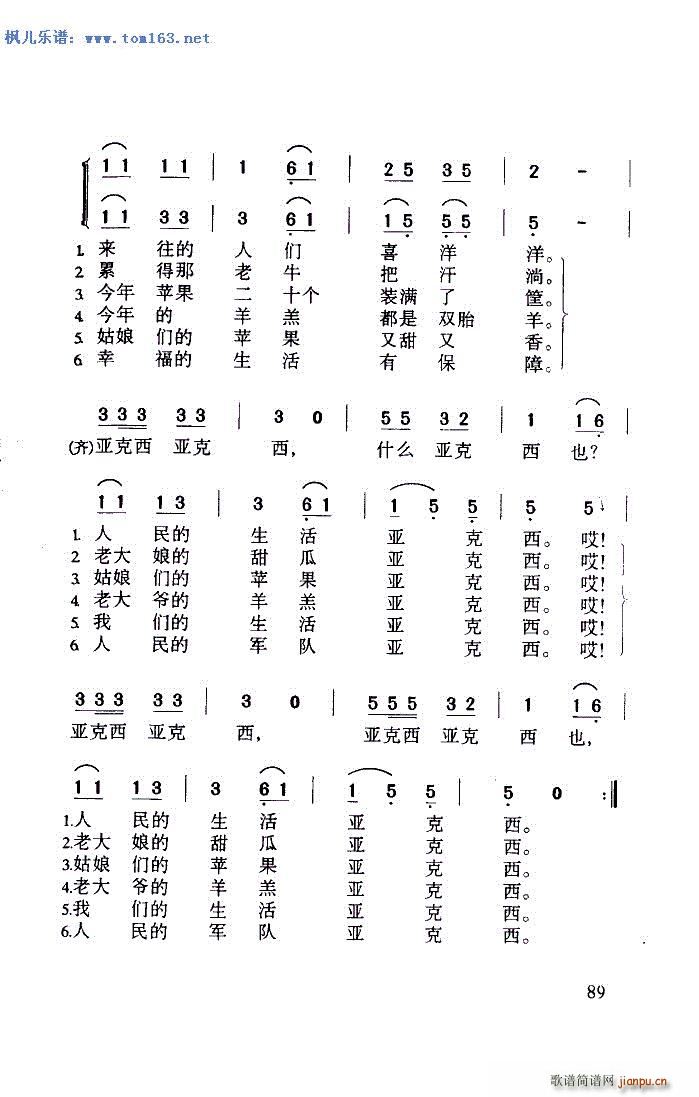 枫儿乐谱：www.tom163.net
1 1 1 1 | 1 6 1 | 2 5 3 5 | 2 － |
1 1 3 3 | 3 6 1 | 1 5 5 5 | 5 －
1. 来 往的 人 们 喜 洋 洋。
2. 累 得那 老 牛 把 汗 淌。
3. 今年 苹果 二 十个 装满 了 筐。
4. 今年 的 羊 羔 都是 双胎 羊。
5. 姑娘 们的 苹 果 又甜 又 香。
6. 幸 福的 生 活 有 保 障。
3 3 3 3 3 | 3 0 | 5 5 3 2 | 1 1 6 |
(齐)亚克西 亚克 西， 什么 亚克 西 也？
1 1 1 3 | 3 6 1 | 1 5 5 | 5 5 |
1. 人 民的 生 活 亚 克 西。哎！
2. 老大 娘的 甜 瓜 亚 克 西。哎！
3. 姑娘 们的 苹 果 亚 克 西。哎！
4. 老大 爷的 羊 羔 亚 克 西。哎！
5. 我 们的 生 活 亚 克 西。哎！
6. 人 民的 军 队 亚 克 西。哎！
3 3 3 3 3 | 3 0 | 5 5 5 3 2 | 1 1 6 |
亚克西 亚克 西， 亚克西 亚克 西 也，
1 1 1 3 | 3 6 1 | 1 5 5 | 5 0 :‖
1.人 民的 生 活 亚 克 西。
2.老大 娘的 甜 瓜 亚 克 西。
3.姑娘 们的 苹 果 亚 克 西。
4.老大 爷的 羊 羔 亚 克 西。
5.我 们的 生 活 亚 克 西。
6.人 民的 军 队 亚 克 西。
89
歌谱简谱网
jianpu.cn